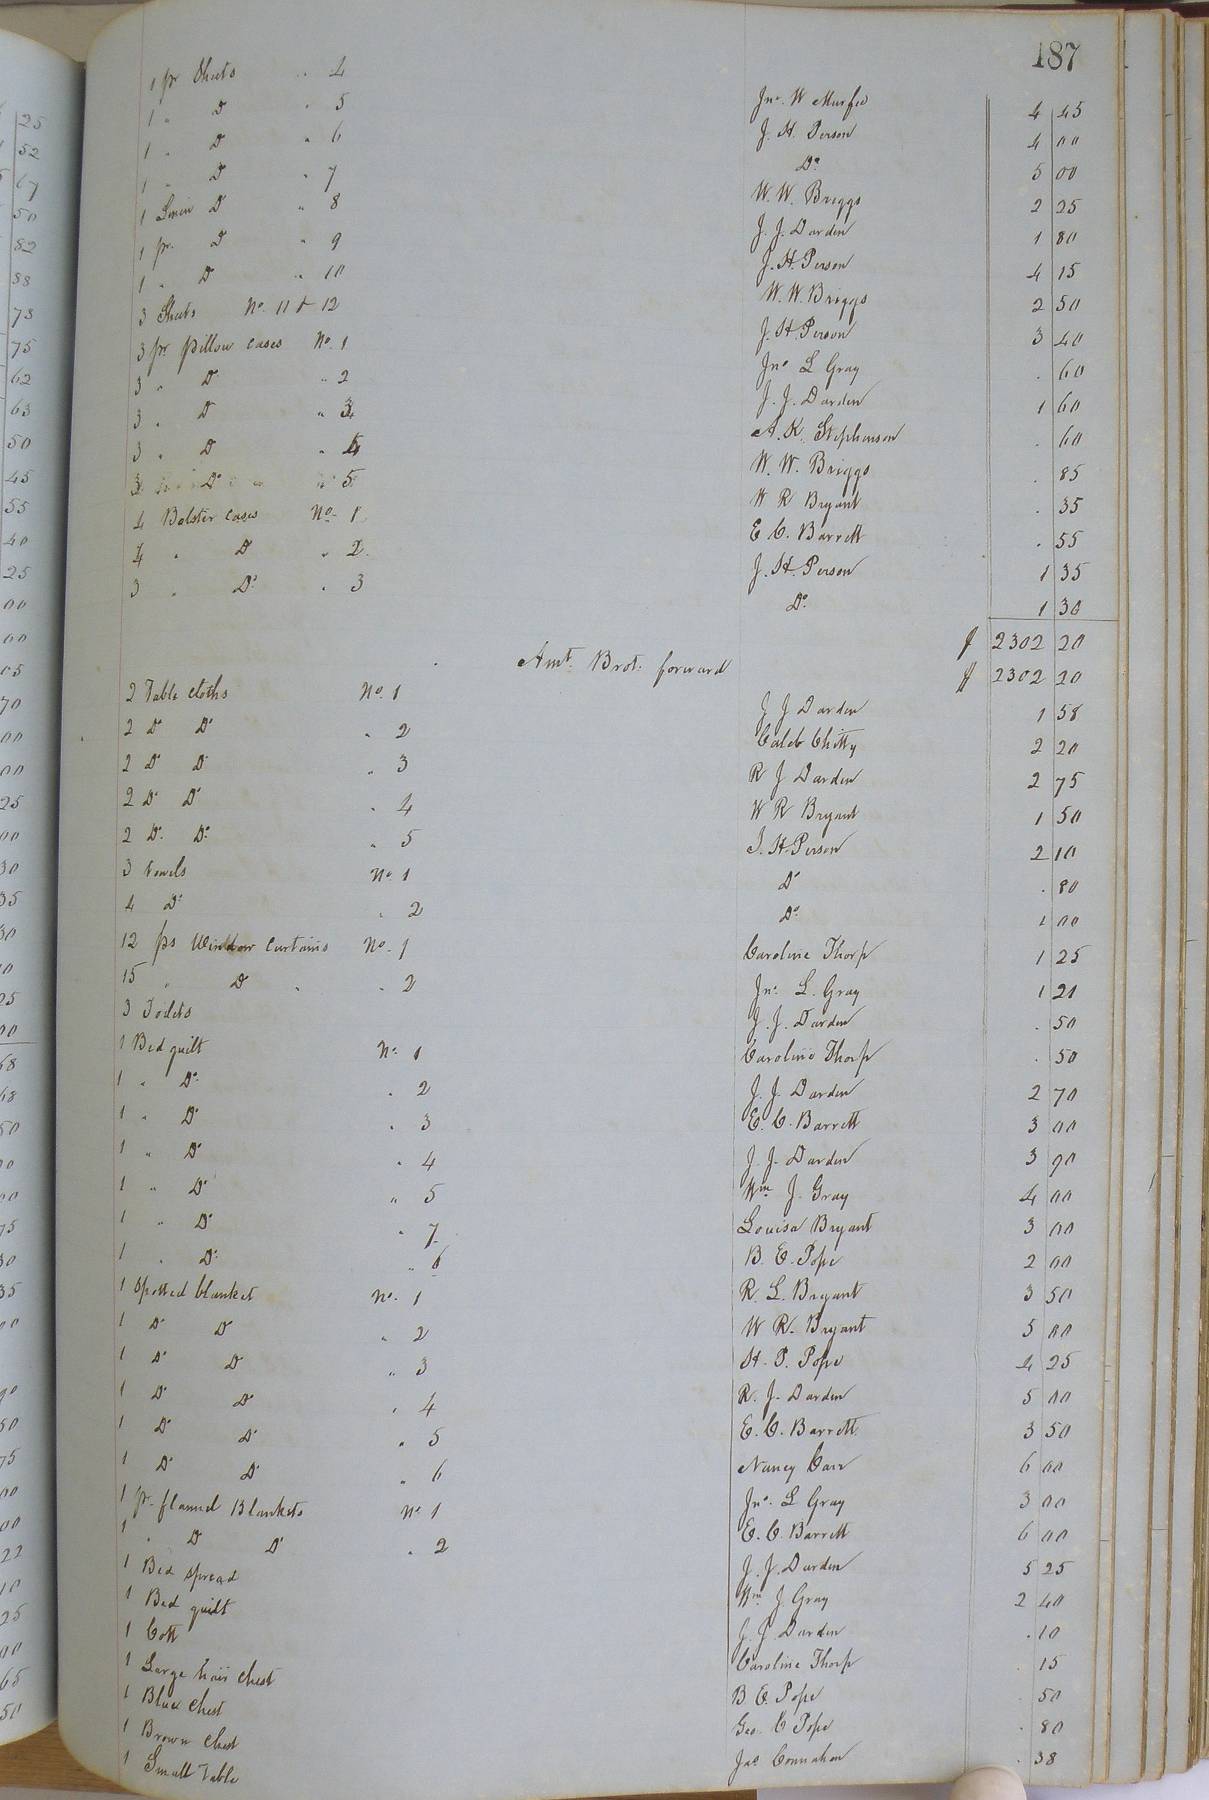 187
1 pr Sheets " 4 Jno. W Murfee 4 45
1 " Do " 5 J. H. Person 4 00
1 " Do " 6 Do. 5 00
1 " Do " 7 W. W. Briggs 2 25
1 Linin Do " 8 J. J. Darden 1 80
1 pr. Do " 9 J. H. Person 4 15
1 " Do " 10 W. W. Briggs 2 50
3 Sheets No. 11 & 12 J. H. Person 3 40
3 pr pillow cases No. 1 Jno L Gray . 60
3 " Do " 2 J. J. Darden 1 60
3 " Do " 3 A. K. Stephenson . 60
3 " Do " 4 W. W. Briggs . 85
3 Do 5 W R Bryant . 35
4 Bolster cases No. 1 E. C. Barrett . 55
4 " Do " 2 J. H. Person 1 35
3 " Do. " 3 Do. 1 30
$ 2302 20
Amt. Brot. forward $ 2302 20
2 Table cloths No. 1 J J Darden 1 58
2 Do Do " 2 Caleb Chitty 2 20
2 Do Do " 3 R J Darden 2 75
2 Do Do " 4 W R Bryant 1 50
2 Do. Do. " 5 J. H. Person 2 10
3 towels No 1 Do . 80
4 Do " 2 Do. 1 00
12 ps Window curtains No. 1 Caroline Thorp 1 25
15 " Do " " 2 Jno. L. Gray 1 21
3 Toilets J. J. Darden . 50
1 Bed quilt No. 1 Caroline Thorp . 50
1 " Do. " 2 J. J. Darden 2 70
1 " Do " 3 E. C. Barrett 3 00
1 " Do " 4 J. J. Darden 3 90
1 " Do " 5 Wm J. Gray 4 00
1 " Do " 7 Louisa Bryant 3 00
1 " Do. " 6 B. E. Pope 2 00
1 Spotted blanket No. 1 R. L. Bryant 3 50
1 Do Do " 2 W R. Bryant 5 00
1 Do Do " 3 H. P. Pope 4 25
1 Do Do " 4 R. J. Darden 5 00
1 Do Do " 5 E. C. Barrett 3 50
1 Do Do " 6 Nancy Carr 6 00
1 pr. flannel Blankets No 1 Jno. L Gray 3 00
1 " Do Do " 2 E. C. Barrett 6 00
1 Bed spread J. J. Darden 5 25
1 Bed quilt Wm J. Gray 2 40
1 Cott J. J. Darden . 10
1 Large hair chest Caroline Thorp 15
1 Blue chest B. E. Pope 50
1 Brown chest Geo. C Pope . 80
1 Small Table 38